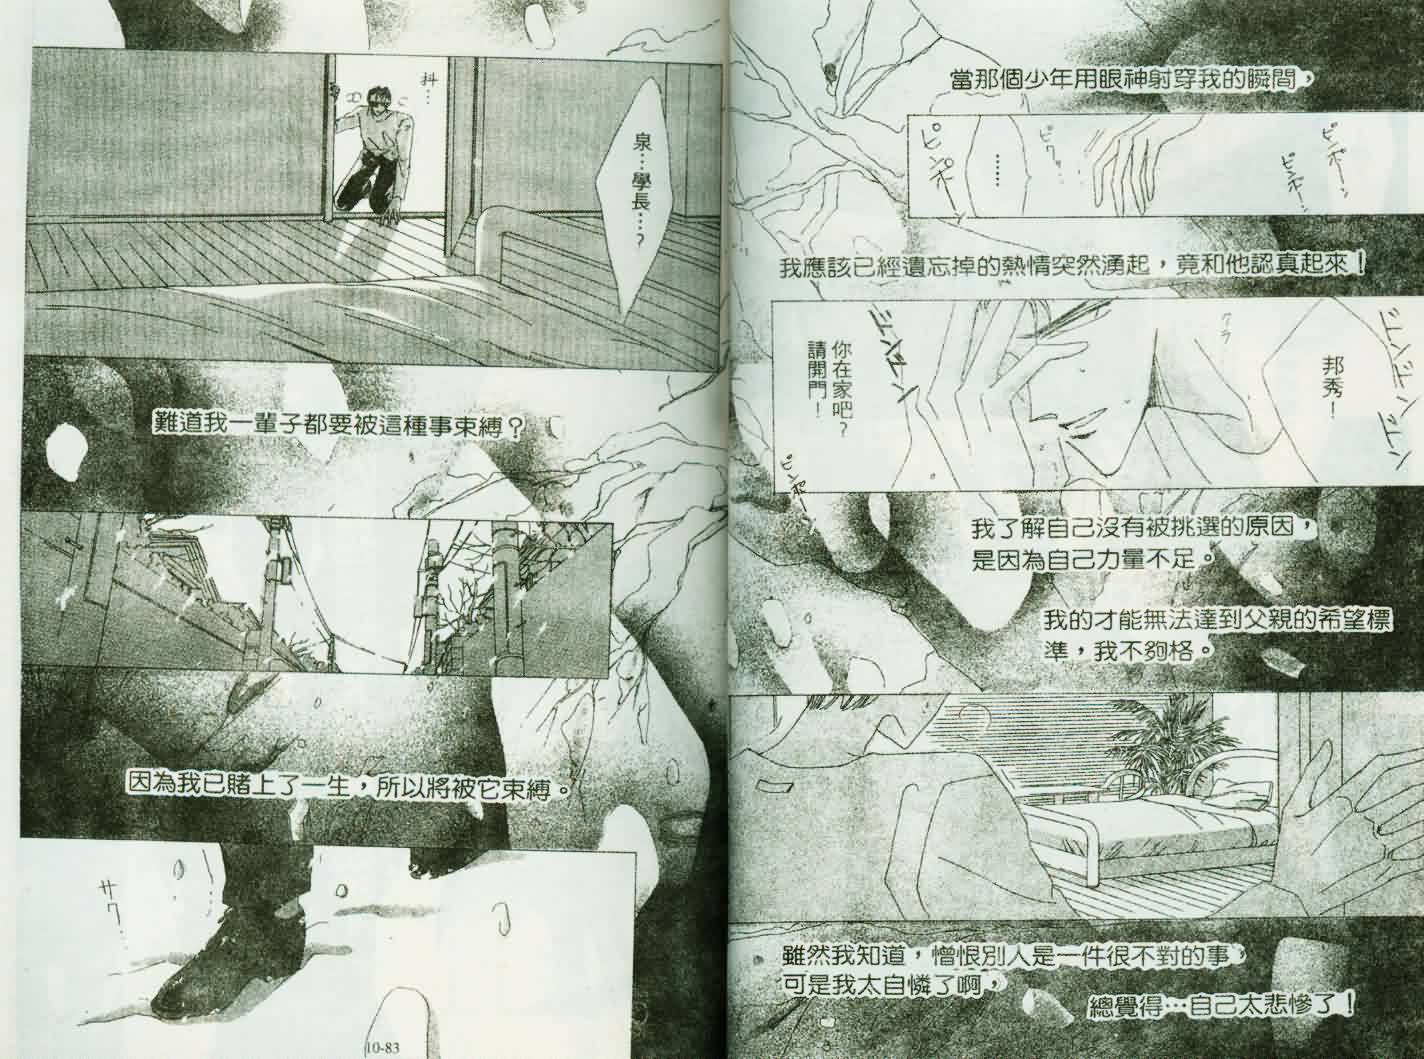 當那個少年用眼神射穿我的瞬間，
ピンポーン
ピンポーン
ピクッ…
……
ピンポーン
我應該已經遺忘掉的熱情突然湧起，竟和他認真起來！
邦秀！
クラ
你在家吧？
請開門！
ピンポーン
我了解自己沒有被挑選的原因，
是因為自己力量不足。
我的才能無法達到父親的希望標
準，我不夠格。
雖然我知道，憎恨別人是一件很不對的事，
可是我太自憐了啊，
總覺得…自己太悲慘了！
抖…
泉…學長…？
難道我一輩子都要被這種事束縛？
因為我已賭上了一生，所以將被它束縛。
サク…
10-83